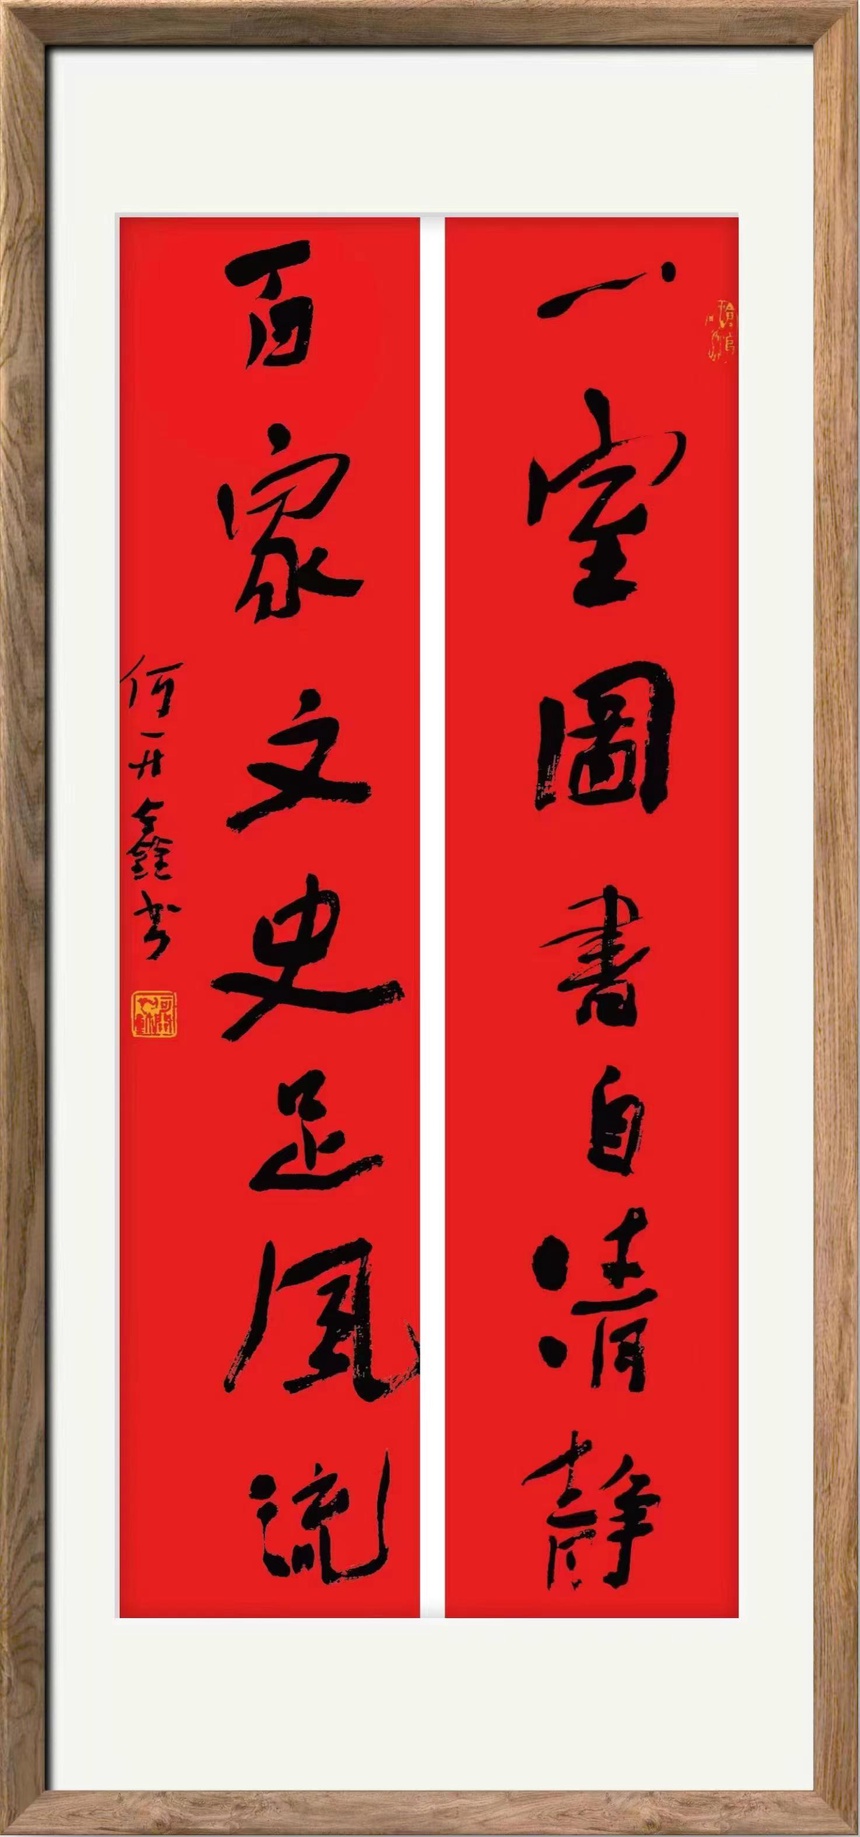 一室圖書自清靜
百家文史足風流
何开鑫书